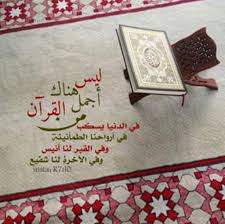 ليس هناك
أجمل
من القرآن
في الدنيا يسكب
في أرواحنا الطمأنينة
وفي القبر لنا أنيس
وفي الآخرة لنا شفيع